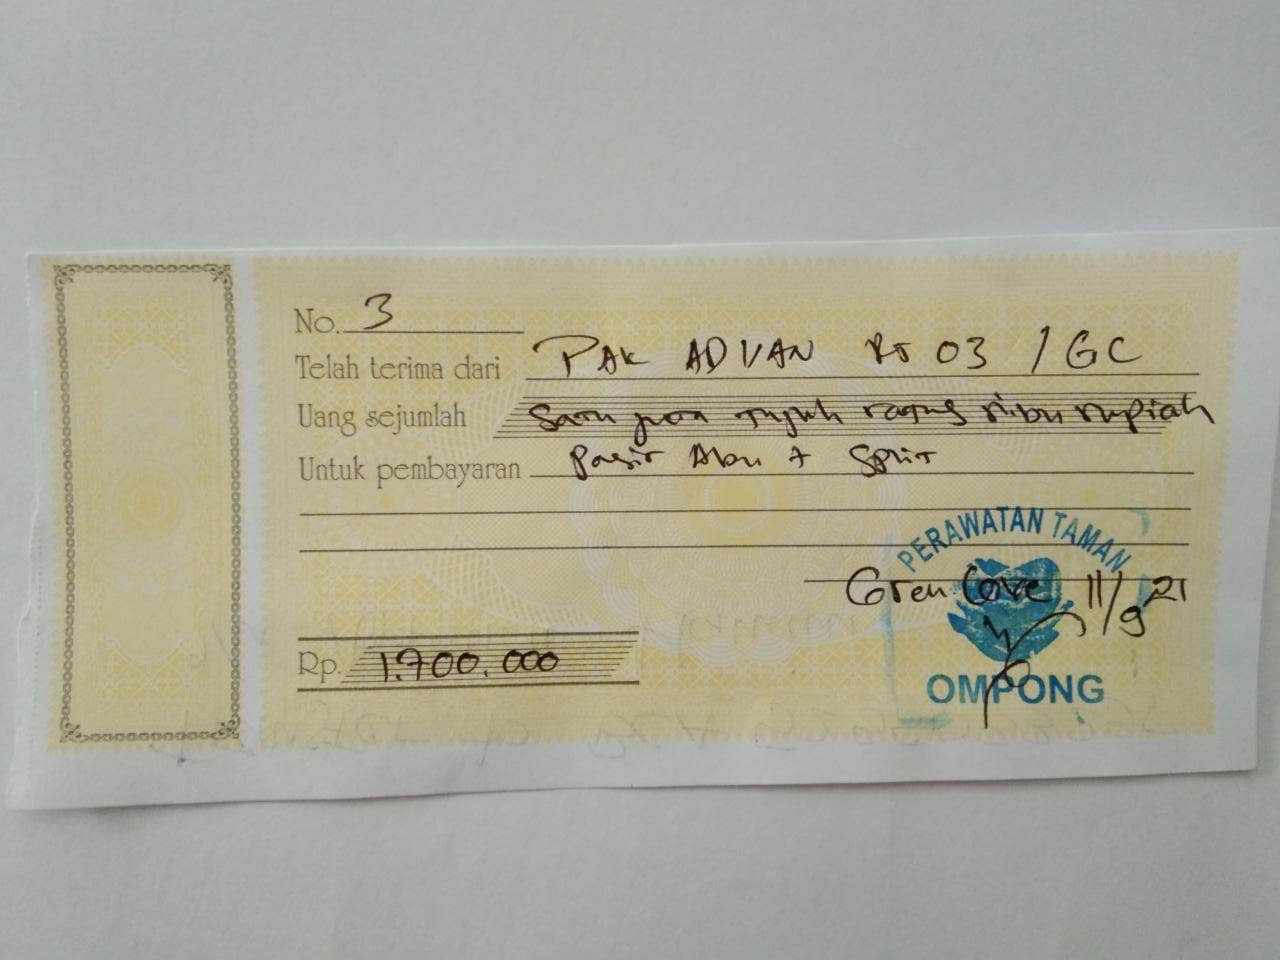 No. 3
Telah terima dari PAK ADVAN RT 03 / GC
Uang sejumlah Satu juta tujuh ratus ribu rupiah
Untuk pembayaran Pasir Abu + Split
PERAWATAN TAMAN
Gren Cove 11/9 21
Rp. 1.700.000
OMPONG